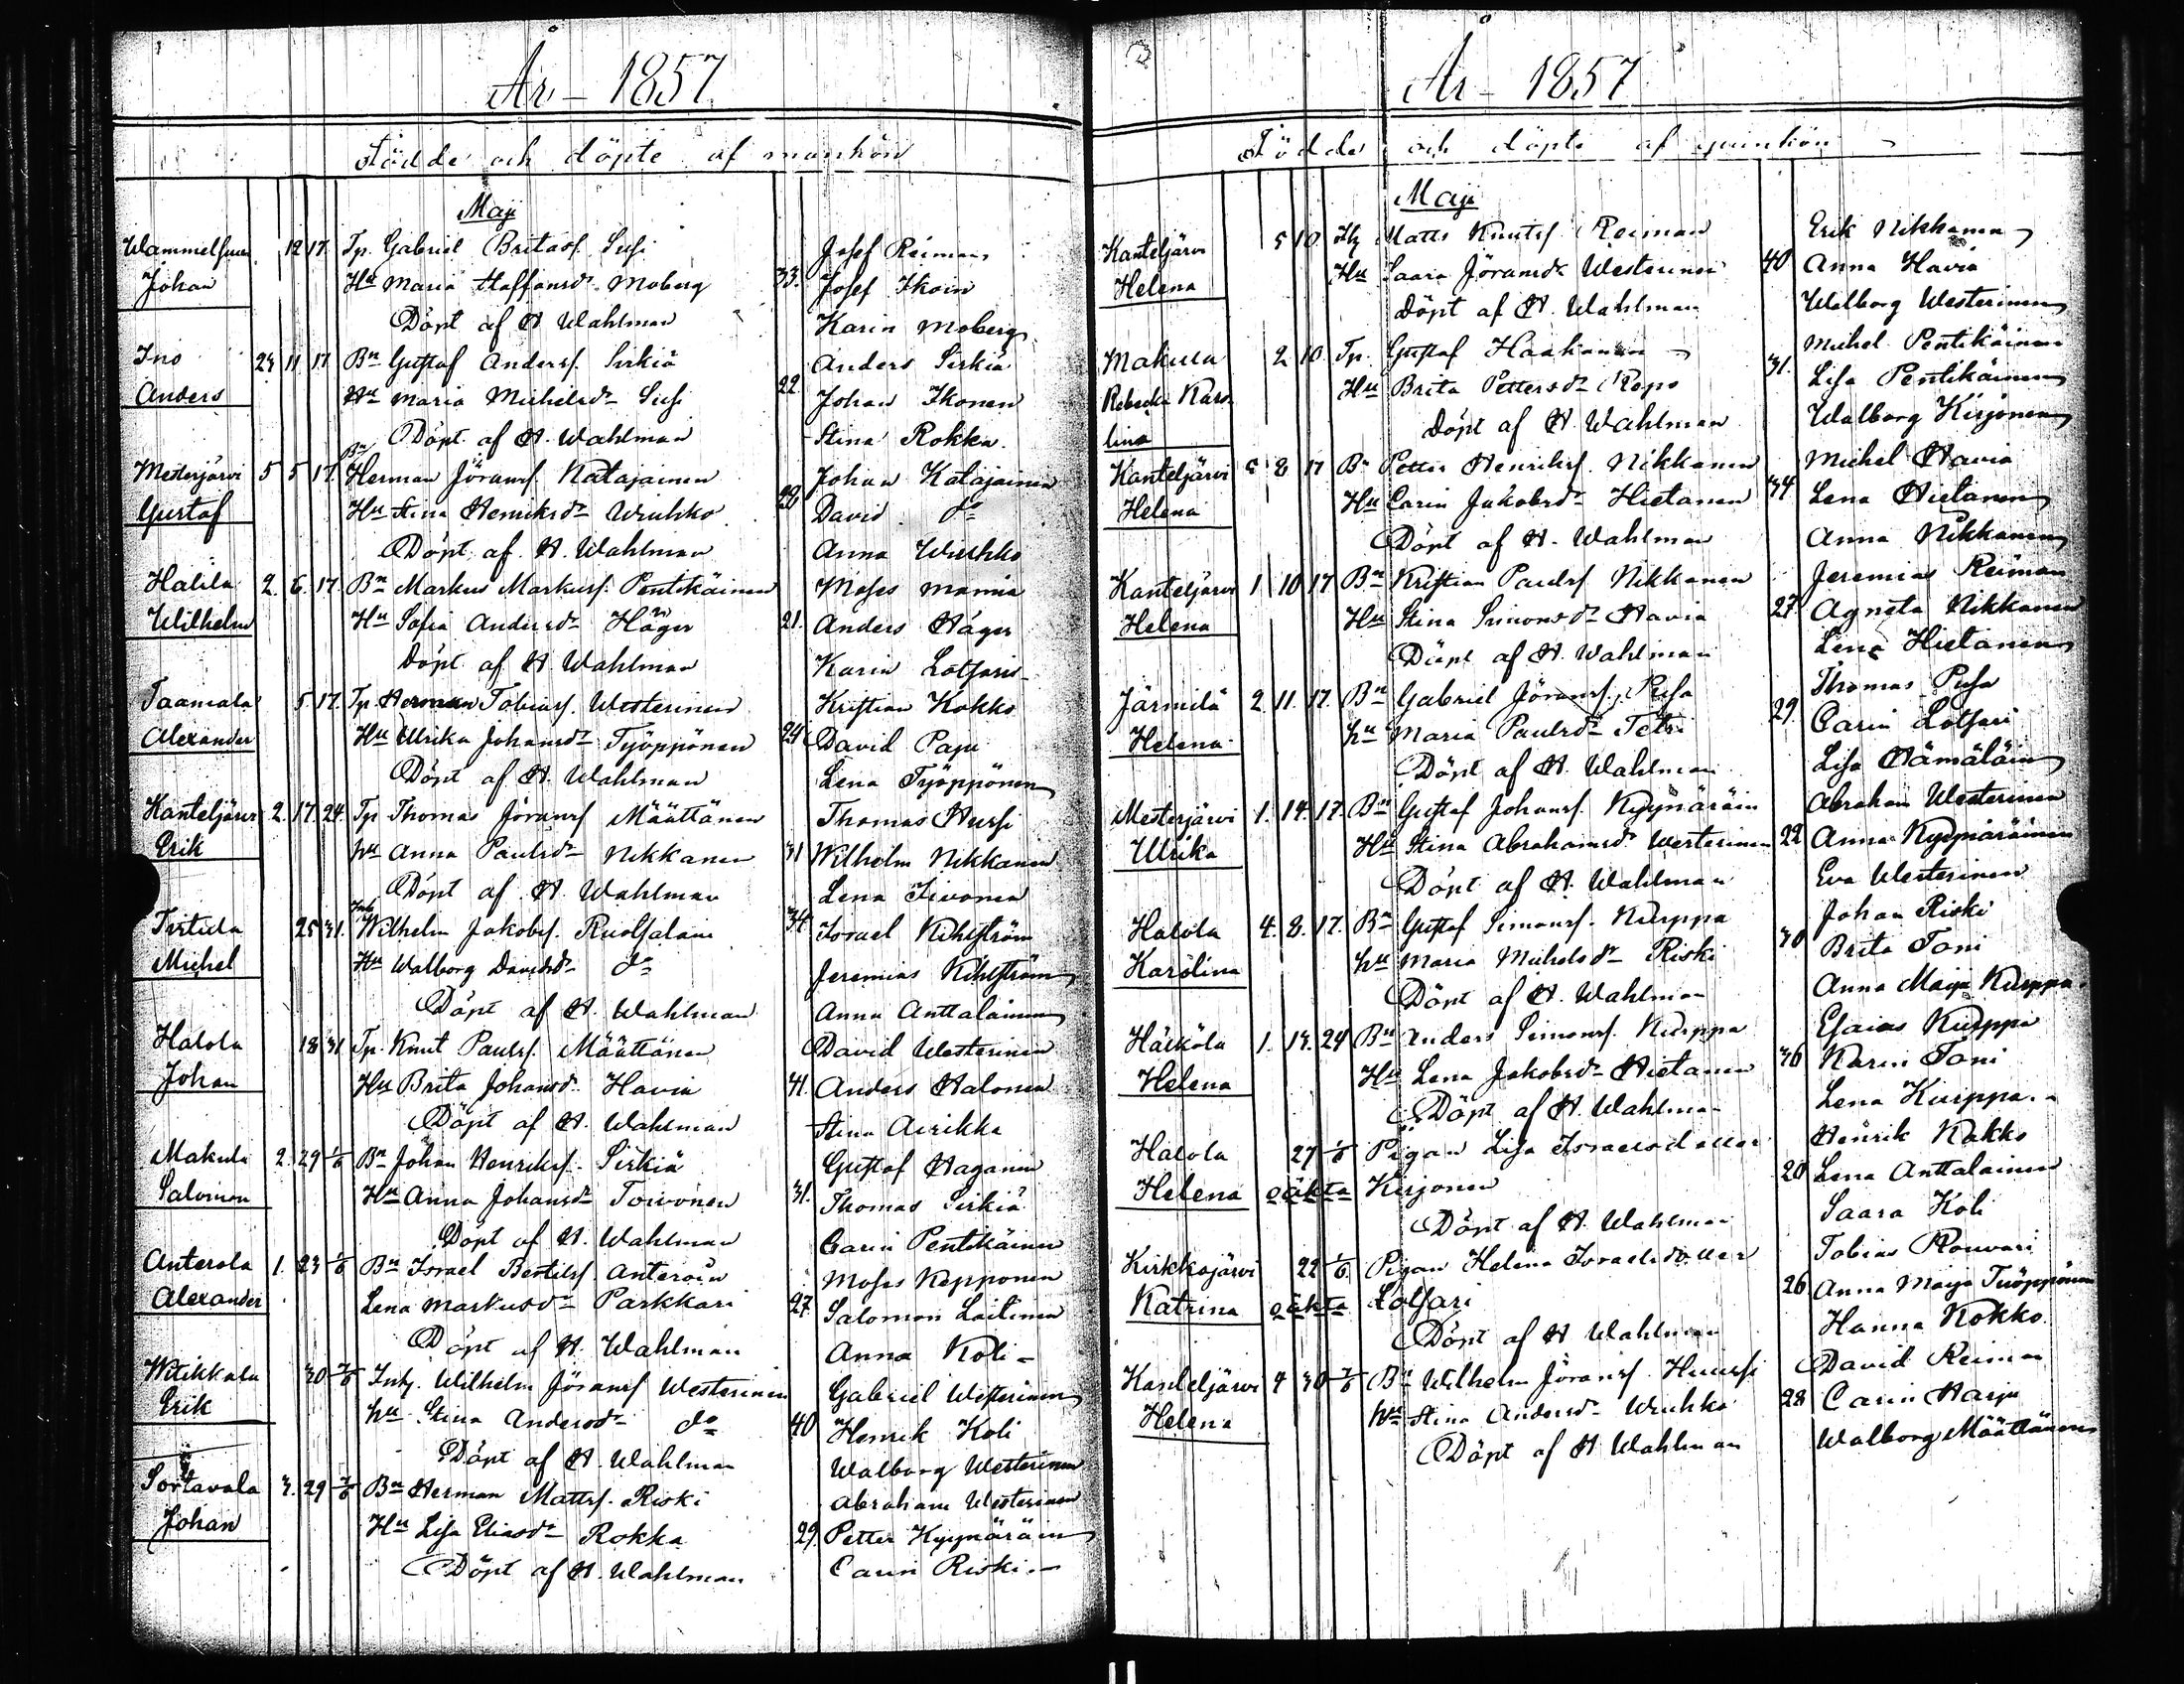 År - 1857
Födde och döpte af mankön
Maji
12 17. Tp. Gabriel Britasf. Susi Josef Reiman
Johan Hu Maria Staffansdr Moberg 33. Josef Ikoin
Döpt af A Wahlman Karin Moberg
Ino 24 11 17 Bn Gustaf Andersf. Sirkiä Anders Sirkiä
Anders Hu Maria Michelsdr Susi 22 Johan Ikonen
Döpt af A. Wahlman Stina Rokka.
Mesterjärvi 5 5 17. Bn Herman Jöransf. Katajainen Johan Katajainen
Gustaf Hu Stina Henriksdr Wiuhko 28 David do
Döpt af A. Wahlman Anna Wiuhko
Halila 2. 6. 17. Bn Markus Markusf. Pentikäinen Moses Mamia
Wilhelm Hu Sofia Andersdr Häger 21. Anders Häger
Döpt af A Wahlman Karin Lotsari
Taamala 5. 17. Tp. Herman Tobiasf. Westerinen Kristian Kokko
Alexander Hu Ulrika Johansdr Työppönen 24 David Paju
Döpt af A. Wahlman Lena Työppönen
Kanteljärvi 2. 17. 24. Tp Thomas Jöransf Määttänen Thomas Hussi
Erik hu Anna Paulsdr Nikkanen 31 Wilhelm Nikkanen
Döpt af A. Wahlman Lena Sivonen
25 31. Inh Wilhelm Jakobsf. 34 Israel Kihlström
Michel Hu Walborg Davidsdr do Jeremias Kihlström
Döpt af A. Wahlman Anna Anttalainen
Halola 18 31 Tp. Knut Paulsf. Määttänen David Westerinen
Johan Hu Brita Johansdr Havia 41. Anders Halonen
Döpt af A. Wahlman Stina Airikka
Makula 2. 29 1/6 Bn Johan Henriksf. Sirkiä Gustaf Haganen
Salomon Hu Anna Johansdr Toivonen 31. Thomas Sirkiä
Döpt af A. Wahlman Carin Pentikäinen
Anterola 1. 23 1/6 Bn Israel Bertilsf. Anteroin Moses Kepponen
Alexander Lena Markusdr Parkkari 27. Salomon Laitinen
Döpt af A. Wahlman Anna Koli -
Witikkala 30 7/6 Inh. Wilhelm Jöransf Westerinen Gabriel Westerinen
Erik hu Stina Andersdr do 40 Henrik Koli
Döpt af A. Wahlman Walborg Westerinen
Sortavala 3. 29 7/6 Bn Herman Mattsf. Riski Abraham Westerinen
Johan Hu Lisa Eliasdr Rokka 29. Petter Kyynäräin
Döpt af A. Wahlman Carin Riski. -
År - 1857
Födde och döpte af qvinkön
Maji
Kanteljärvi 5 10 Matts Knutsf Reiman Erik Nikkanen
Helena Hu Saara Jöransdr Westerinen 40 Anna Havia
Döpt af A. Wahlman Walborg Westerinen
Makula 2 10 Tp. Gustaf Haakanen Michel Pentikäinen
Rebecka Karo Hu Brita Pettersdr Repo 31. Lisa Pentikäinen
lina Döpt af A. Wahlman Walborg Kirjonen
Kanteljärvi 5 8 17 Bn Petter Henriksf. Nikkanen Michel Havia
Helena Hu Carin Jakobsdr Hietanen 34 Lena Hietanen
Döpt af A. Wahlman Anna Nikkanen
Kanteljärvi 1 10 17 Bn Kristian Paulsf Nikkanen Jeremias Reiman
Helena Hu Stina Simonsdr Havia 27. Agneta Nikkanen
Döpt af A. Wahlman Lena Hietanen
Järmilä 2. 11. 17. Bn Gabriel Jöransf. Pusa Thomas Pusa
Helena hu Maria Paulsdr Tetri 29. Carin Lotsari
Döpt af A. Wahlman Lisa Hämäläin
Mesterjärvi 1. 14. 17. Bn Gustaf Johansf. Kyynäräin Abraham Westerinen
Ulrika Hu Stina Abrahamsdr Westerinen 22 Anna Kyynäräinen
Döpt af A. Wahlman Eva Westerinen
Halola 4. 8. 17. Bn Gustaf Simonsf. Kurppa Johan Riski
Karolina hu Maria Michelsdr Riski 30 Brita Toni
Döpt af A. Wahlman Anna Maija Kurppa.
Häiköla 1. 13. 24 Bn Anders Simonsf. Kurppa Esaias Kurppa
Helena Hu Lena Jakobsdr Hietanen 36 Karin Toni
Döpt af A. Wahlman Lena Kurppa. -
Halola 27 1/6 Pigan Lisa Israelsdotter Henrik Kokko
Helena oäkta Kirjonen 20 Lena Anttalainen
Döpt af A. Wahlman Saara Koli
Kirkkojärvi 22 1/6. Pigan Helena Israelsdotter Tobias Rouvari
Katrina oäkta Lotsari 26 Anna Maija Työppönen
Döpt af A Wahlman Hanna Kokko.
Kanteljärvi 4 30 7/6 Bn Wilhelm Jöransf. Huussi David Reiman
Helena hu Stina Andersdr Wiuhko 28 Carin Harju
Döpt af A Wahlman Walborg Määttänen